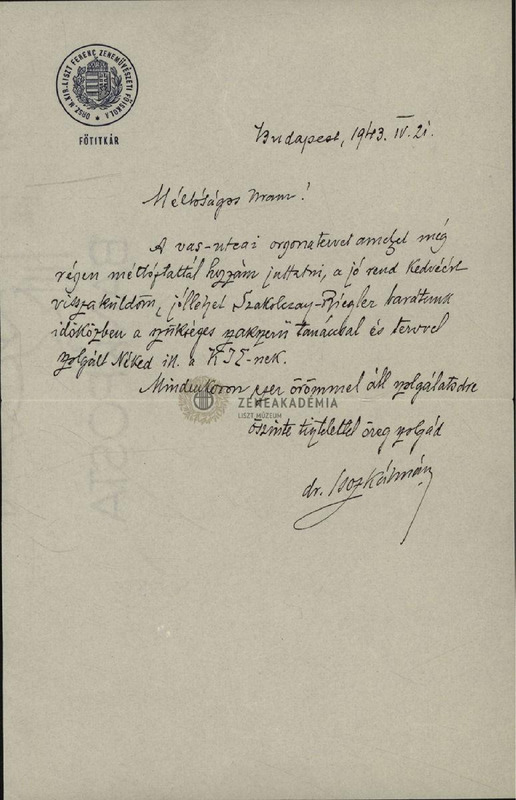 ORSZ. M. KIR. LISZT FERENC ZENEMŰVÉSZETI FŐISKOLA
FŐTITKÁR
Budapest, 1943. IV. 21.
Méltóságos Uram!
A vas-utcai orgonatervet amelyet még
régen méltóztattál hozzám juttatni, a jó rend kedvéért
visszaküldöm, jóllehet Szakolczay-Riegler barátunk
időközben a szükséges szakszerű tanáccsal és tervvel
szolgált Néked ill. a
Mindenkoron örömmel áll szolgálatodra
ZENEAKADÉMIA
LISZT MÚZEUM
őszinte tisztelettel öreg szolgád
dr. Isoz Kálmán